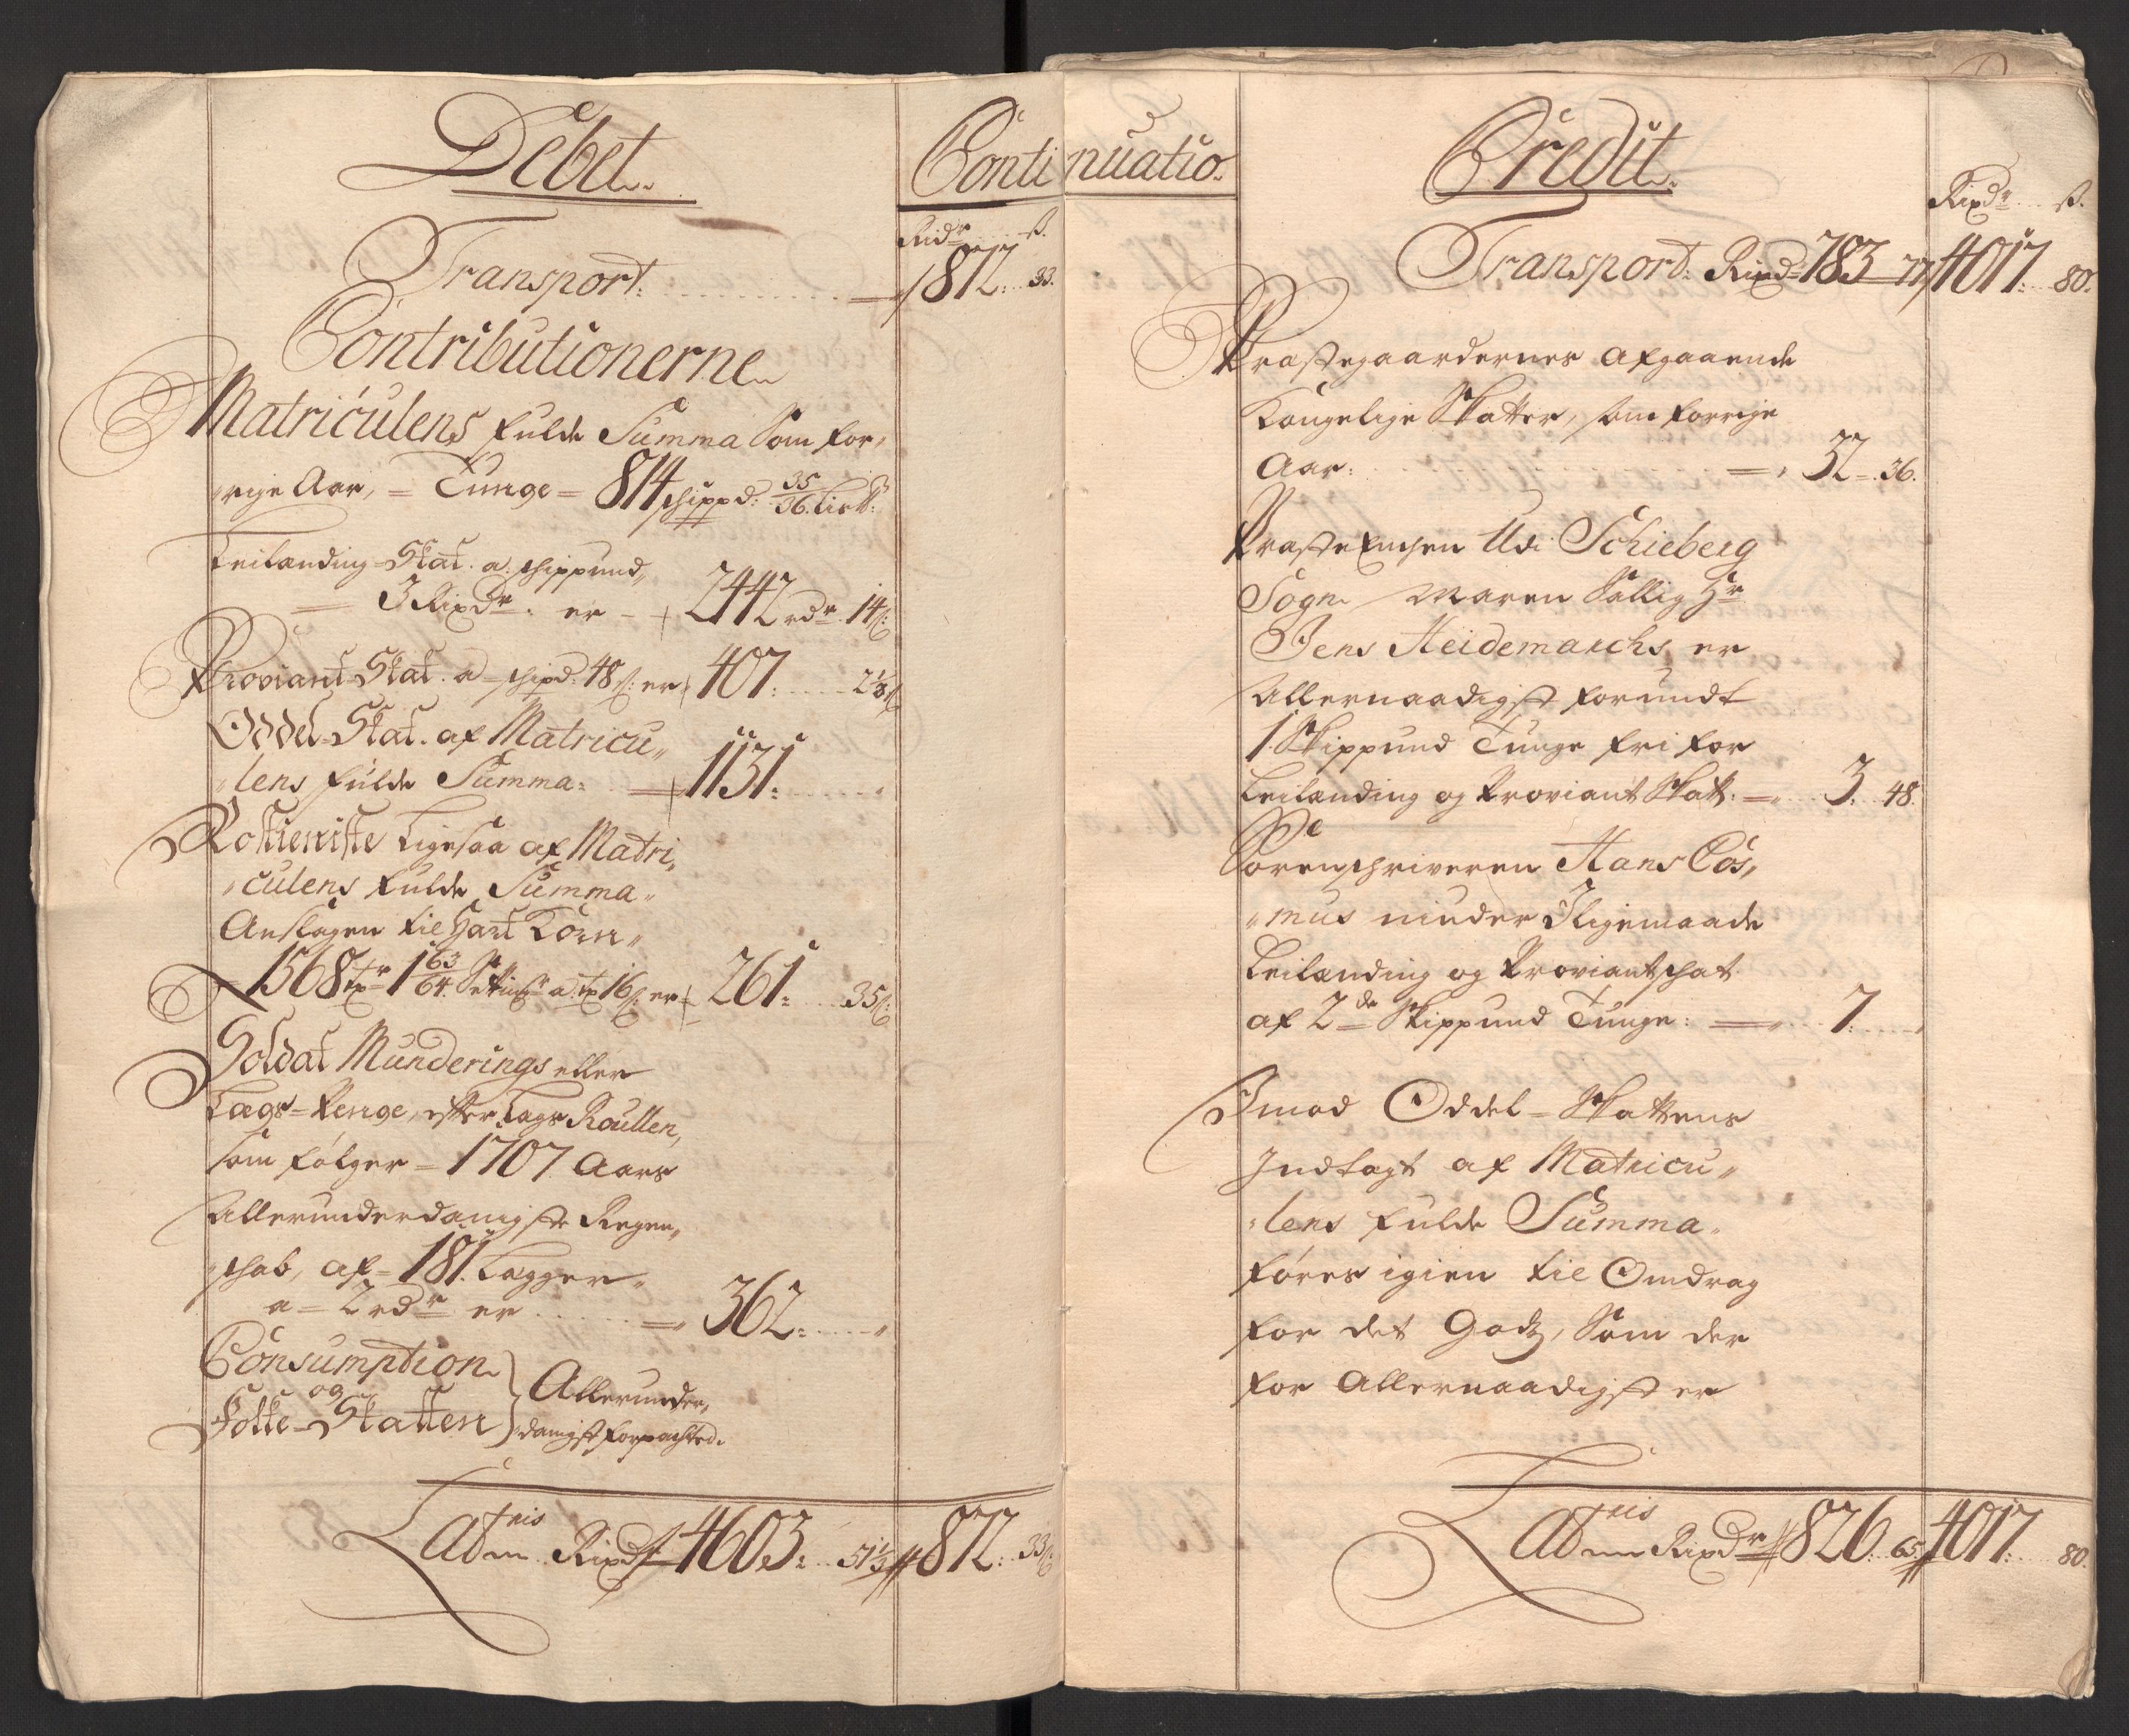 Debet
Continuatio.
Rixdr ß.
Transport: 872: 33.
Contributionerne
Matriculens fulde Summa Som for,
,,rige Aar, = Tunge = 814 schippd: 35/36. lis℔:
Leilænding-Skat. a. schippund,,
3 Rixdr: er - 2442 rdr 14ß:
Proviant-Skat. a schipd: 48ß: er 407: 2 1/3ß
Oddel-Skat. af Matricu,,
,,lens fulde Summa: 1131:
Rostieniste Ligesaa af Matri,,
,,culens fulde Summa,,
Anslagen til Hart Korn,,
1568 tr 1 63/64 Setting a. t 16ß: er 261: 35ß:
Soldat Munderings eller
Lægs-Penge, efter Lægs Roullen,
som følger = 1707 Aars
Allerunderdanigste Regen,,
,,schab, af = 181. Lægger,,
a = 2 rdr er 362:
Consumption
og
Folke-Skatten
Allerunder,,
,,danigst forpachted.
Lateris Rixdr 4603: 51 1/3 872: 33ß
Credit
Rixdr ß.
Transport: Rixd 783 77 4017: 80.
Præstegaardernes afgaaende
Kongelige Skatter, som forrige
Aar: 32 = 36.
Præste Enchen Udi Schieberg
Sogn Maren Sallig Hr
Jens Heidemarchs er
Allernaadigst forundt
1. Skippund Tunge fri for
Leilænding og Proviant Skatt. 3. 48.
Sorenschriveren Hans Cos,,
,,mus niuder Iligemaade
Leilænding og Proviantschat
af 2de Skippund Tunge: 7.
Imod Oddel-Skattens
Indtagt af Matricu,,
,,lens fulde Summa,,
føres igien til Omdrag
for det Godz, Som der
for Allernaadigst er
Lateris Rixdr 826. 65 4017: 80.